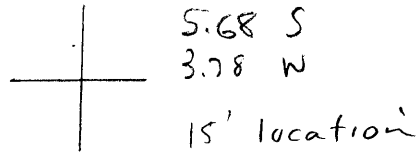 5.68 S
3.78 W
15' location